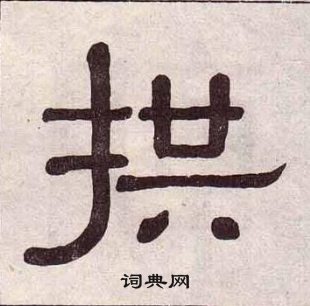 拱
词典网